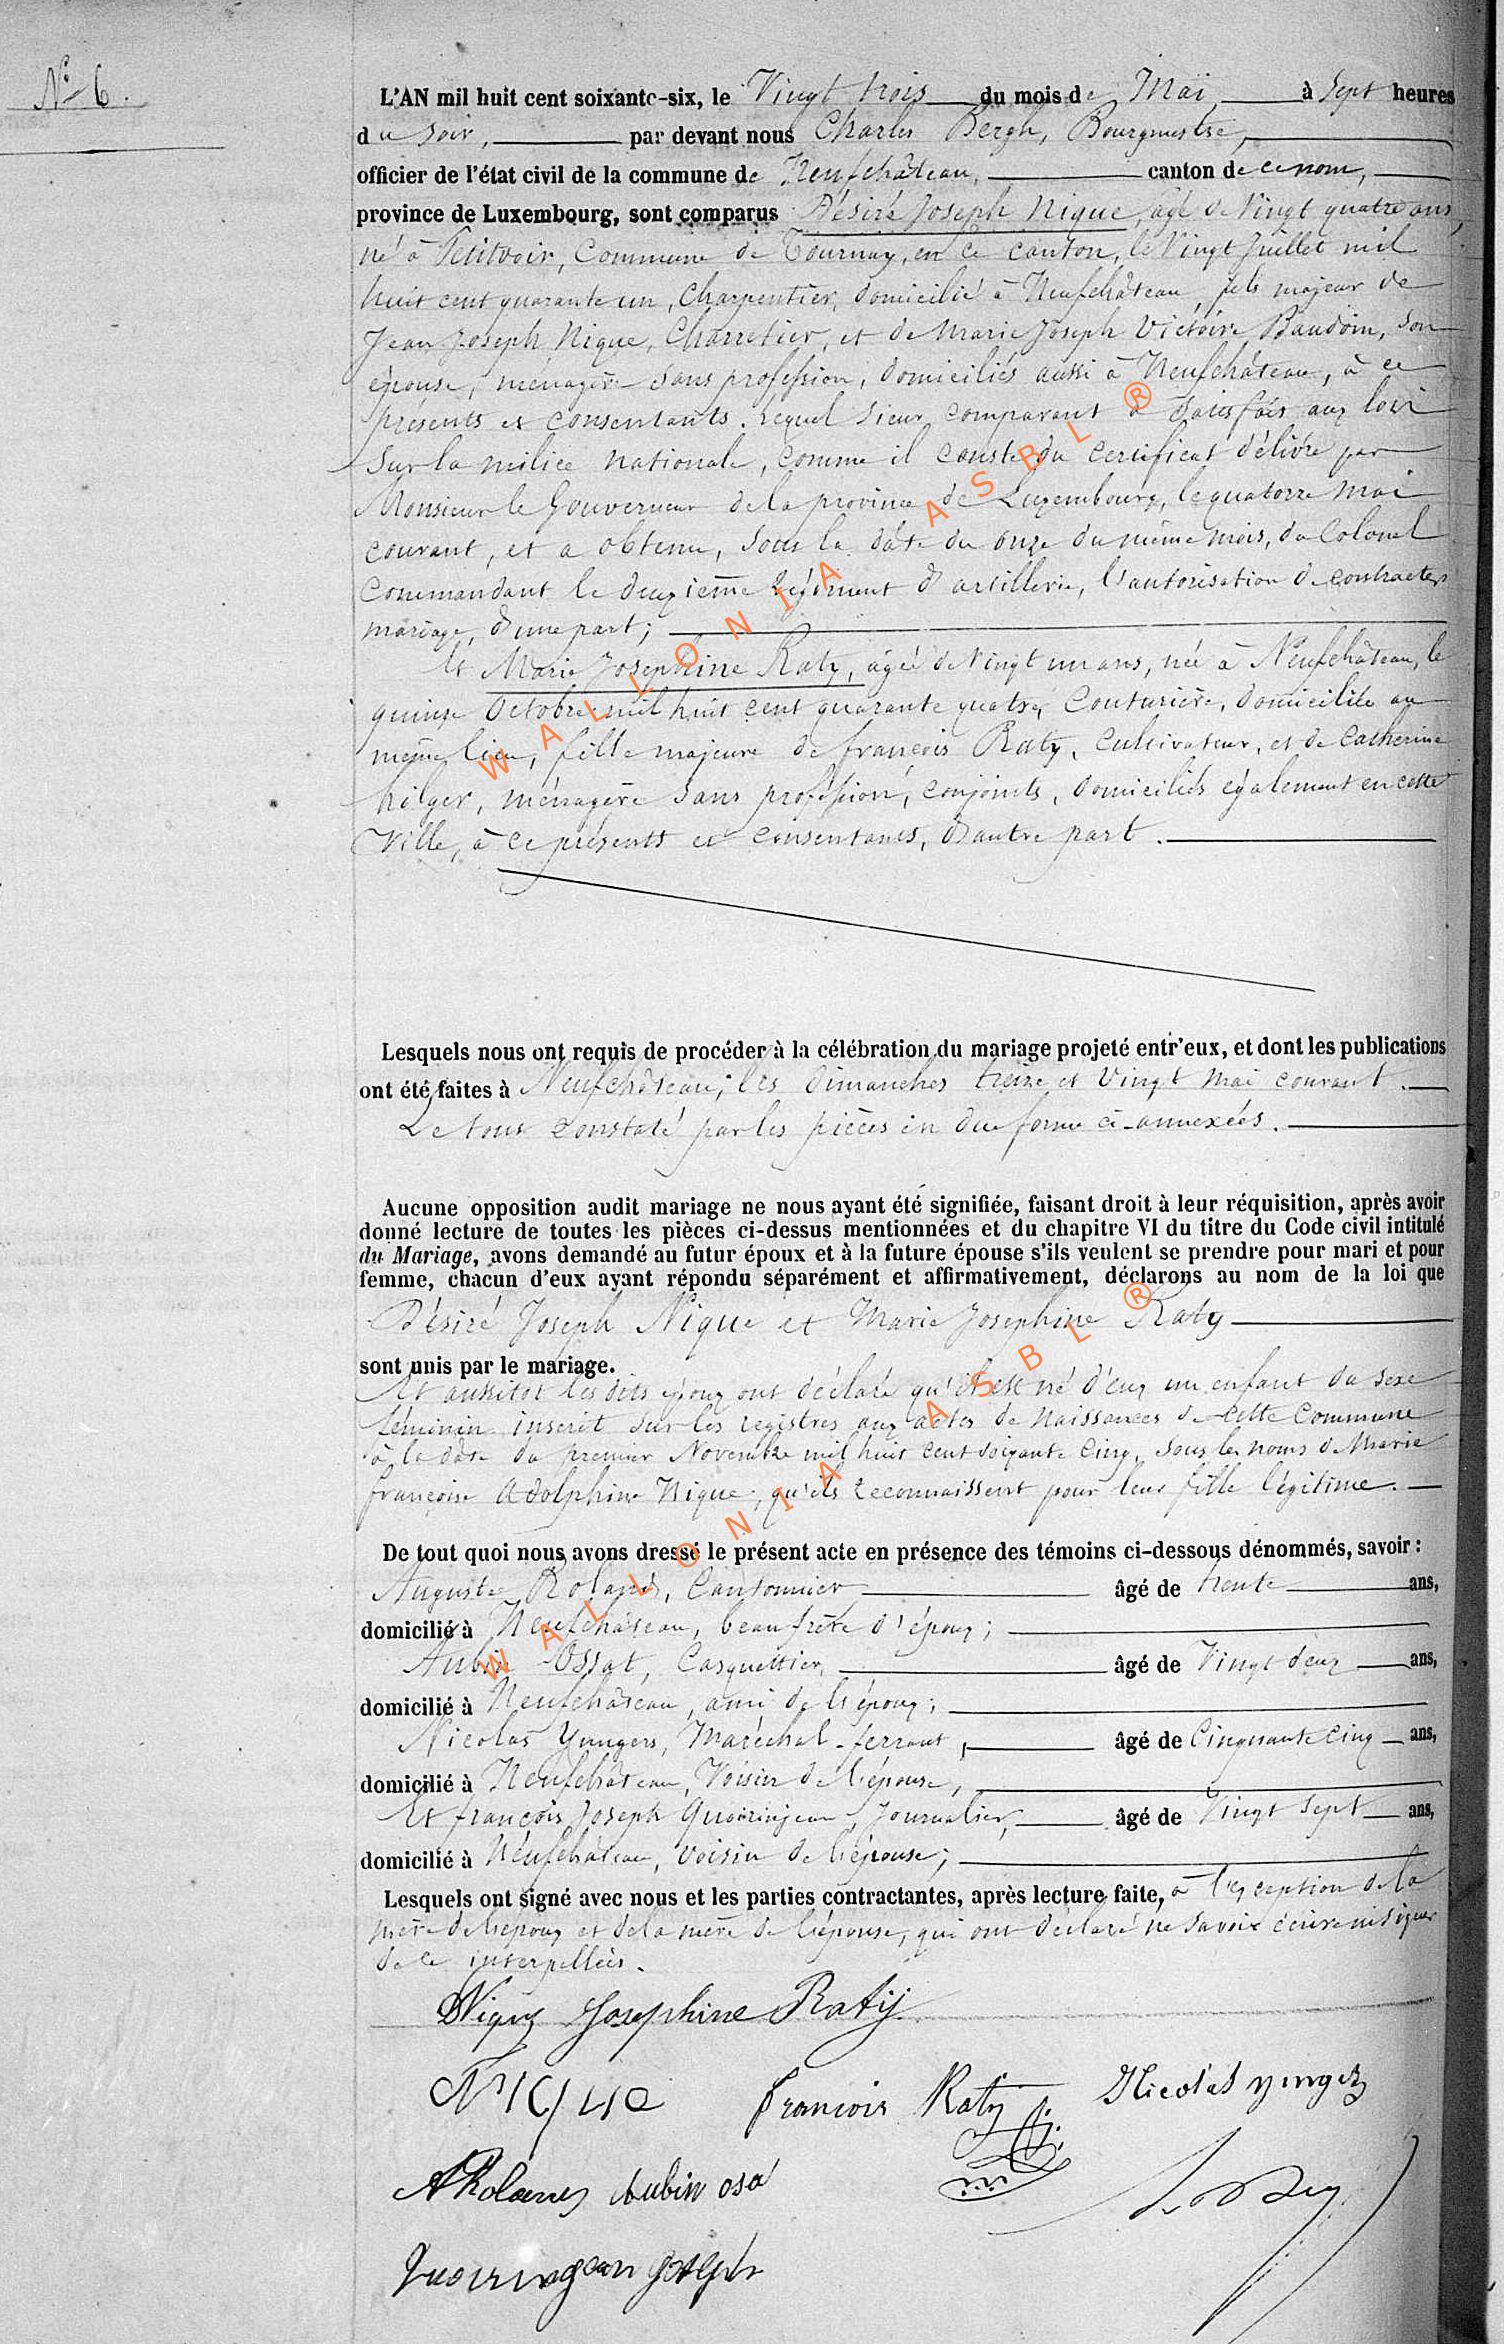 N° 6.
L'AN mil huit cent soixante-six, le Vingt trois du mois de Mai à Sept heures
du soir, par devant nous Charles Bergh, Bourgmestre,
officier de l'état civil de la commune de Neufchâteau, canton de ce nom,
province de Luxembourg, sont comparus Désiré Joseph Nique, âgé de Vingt quatre ans,
né à Petitvoir, Commune de Tournay, en ce canton, le Vingt Juillet mil
huit cent quarante un, Charpentier, domicilié à Neufchâteau, fils majeur de
Jean Joseph Nique, Charretier, et de Marie Joseph Victoire Baudoin, son
épouse, ménagère sans profession, domiciliés aussi à Neufchâteau, à ce
présents et consentants. Lequel sieur comparant a satisfais aux lois
sur la milice nationale, comme il conste du certificat délivré par
Monsieur le Gouverneur de la province de Luxembourg, le quatorze mai
courant, et a obtenu, sous la date du onze du même mois, du Colonel
commandant le deuxième régiment d'artillerie, l'autorisation de contracter
mariage, d'une part;
Et Marie Josephine Raty, âgée de Vingt un ans, née à Neufchâteau, le
quinze Octobre mil huit cent quarante quatre, Couturière, domiciliée au
même lieu, fille majeure de françois Raty, Cultivateur, et de Catherine
hilger, ménagère sans profession, conjoints, domiciliés également en cette
Ville, à ce présents et consentants, d'autre part.
Lesquels nous ont requis de procéder à la célébration du mariage projeté entr'eux, et dont les publications
ont été faites à Neufchâteau, les dimanches treize et Vingt mai courant.
Le tout constaté par les pièces en due forme ci-annexées.
Aucune opposition audit mariage ne nous ayant été signifiée, faisant droit à leur réquisition, après avoir
donné lecture de toutes les pièces ci-dessus mentionnées et du chapitre VI du titre du Code civil intitulé
du Mariage, avons demandé au futur époux et à la future épouse s'ils veulent se prendre pour mari et pour
femme, chacun d'eux ayant répondu séparément et affirmativement, déclarons au nom de la loi que
Désiré Joseph Nique et Marie Josephine Raty
sont unis par le mariage.
Et aussitot les dits époux ont déclaré qu'il est né d'eux un enfant du sexe
féminin inscrit sur les registres aux actes de Naissances de cette Commune
à la date du premier Novembre mil huit cent soixante Cinq, sous les noms de Marie
françoise Adolphine Nique, qu'ils reconnaissent pour leur fille légitime.
De tout quoi nous avons dressé le présent acte en présence des témoins ci-dessous dénommés, savoir :
Auguste Roland, Cantonnier âgé de trente ans,
domicilié à Neufchâteau, beau frère d'époux;
Aubin Ossat, Casquettier, âgé de Vingt deux ans,
domicilié à Neufchâteau, ami de l'époux;
Nicolas Yungers, Maréchal-ferrant, âgé de Cinquante cinq ans,
domicilié à Neufchâteau, Voisin de l'épouse,
Et françois Joseph Quoirinjean, Journalier, âgé de Vingt sept ans,
domicilié à Neufchâteau, voisin de l'épouse;
Lesquels ont signé avec nous et les parties contractantes, après lecture faite, à l'exception de la
mère de l'époux et de la mère de l'épouse, qui ont déclaré ne savoir écrire ni signer
de ce interpellées.
DNique Josephine Ratij
Nique francois Raty Nicolas yunger
ARoland Aubin osa
Quoirinjean Joseph
WALLONIA ASBL ®
WALLONIA ASBL ®